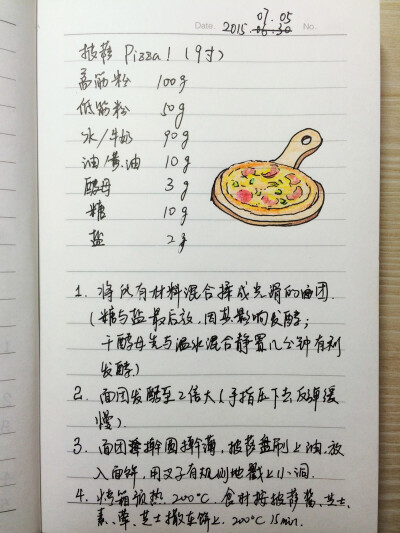 07.05
Date. 2015.06.30 No.
披萨 Pizza! (9寸)
高筋粉 100g
低筋粉 50g
水/牛奶 90g
油/黄油 10g
酵母 3g
糖 10g
盐 2g
1. 将所有材料混合揉成光滑的面团.
(糖与盐最后放,因其影响发酵;
干酵母先与温水混合静置几分钟有利
发酵)
2. 面团发酵至2倍大(手指压下去反弹缓
慢).
3. 面团擀圆擀薄,披萨盘刷上油.放
入面饼,用叉子有规则地戳上小洞.
4. 烤箱预热200°C.食材按披萨酱、芝士、
素、荤、芝士撒在饼上.200°C 15min.